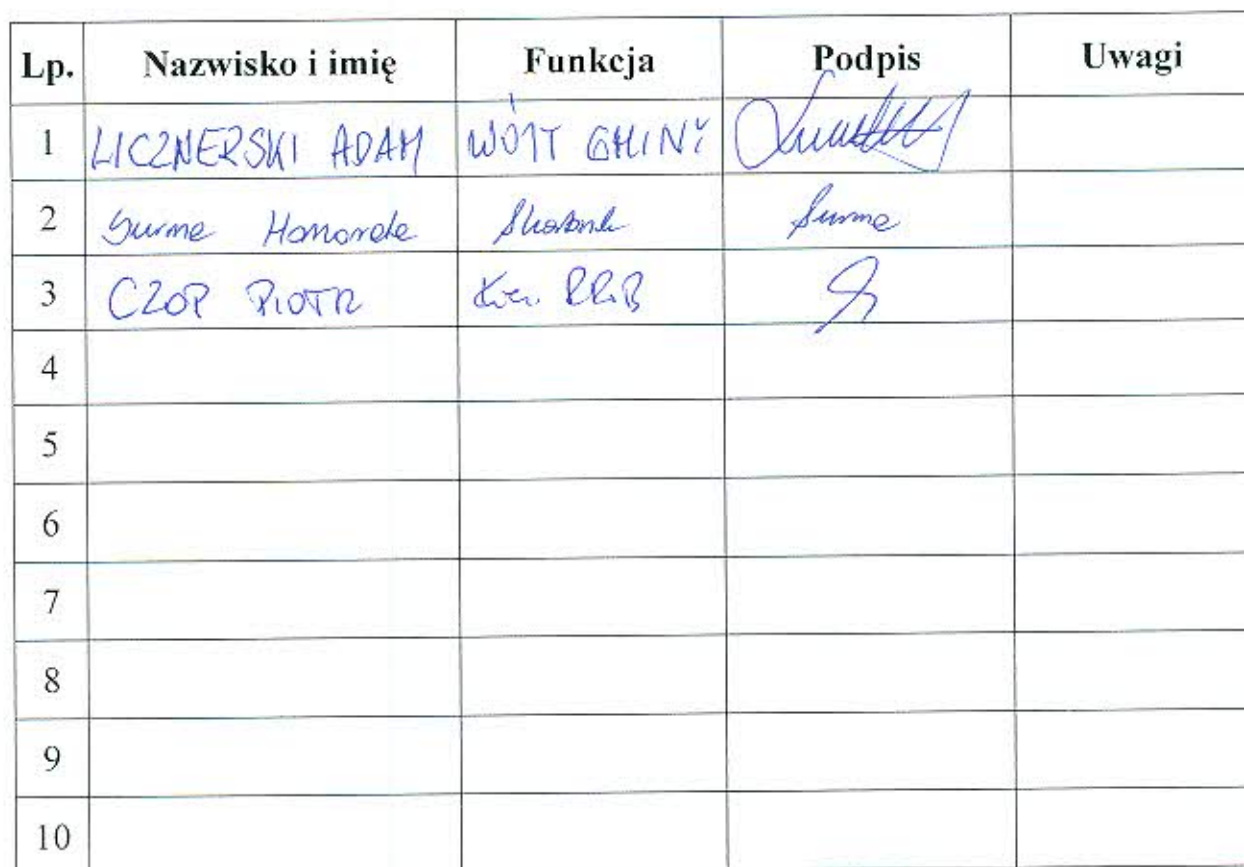 Lp. Nazwisko i imię Funkcja Podpis Uwagi
1 LICZNERSKI ADAM WÓJT GMINY
2 Surma Skarbnik Surma
3 CZOP PIOTR Kier.
4
5
6
7
8
9
10